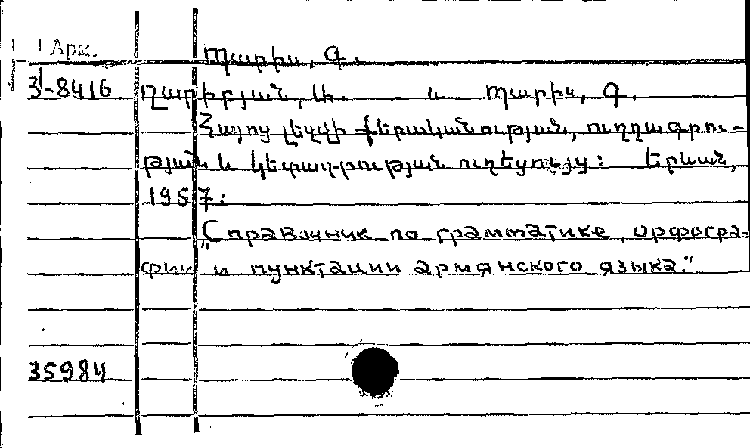 Арк. Պարիս, Գ.
3-8416 Ղարիբյան, Ա. և Պարիս, Գ.
Հայոց լեզվի քերականության, ուղղագրու-
թյան և կետադրության ուղեցույց: Երևան,
1957:
"Справочник по грамматике, орфогра-
фии и пунктации армянского языка."
35984